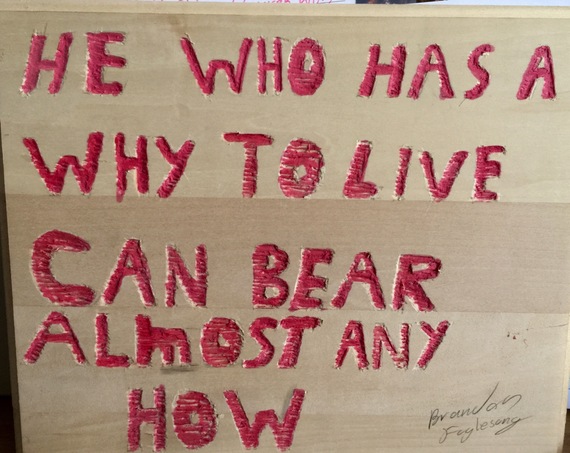 HE WHO HAS A
WHY TO LIVE
CAN BEAR
ALmOST ANY
HOW